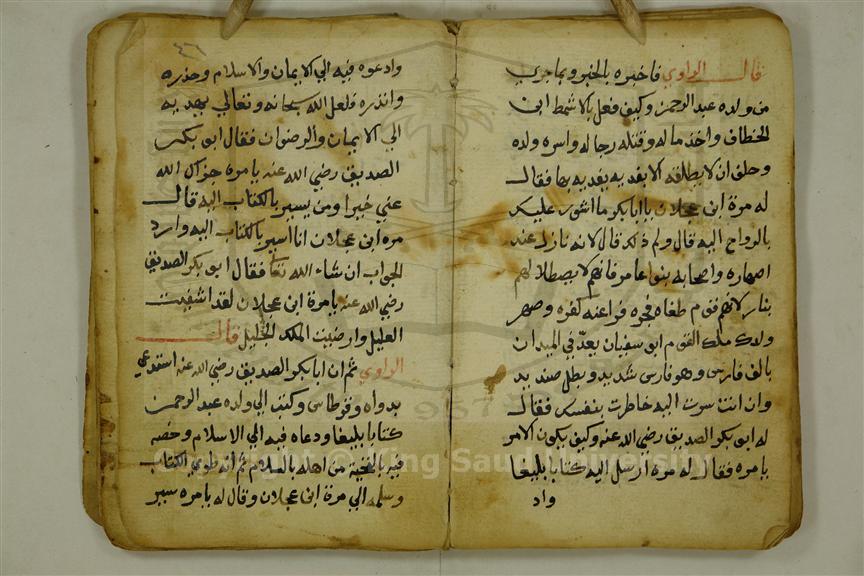 قال الراوي فاخبره بالخبر وبما جري
من ولده عبد الرحمن وكيف فعل بالاشمط ابن
الخطاف واخذ ماله وقتله رجاله واسره ولده
وحلف ان لا يطلقه الا بفديه يفديه بها فقال
له مرة ابن عجلان يا ابا بكر ما اشور عليك
بالرواح اليه قال ولم ذلك قال لانه نازل عند
اصهاره واصحابه بنوا عامر فانهم لا يصطلا لهم
بنار لانهم قوم طغاه فجره فراعنه كفره وصهر
ولدك ملك القوم ابو سفيان يعد في الميدان
بالف فارس وهو فارس شديد وبطل صنديد
وان انت سرت اليه خاطرت بنفسك فقال
له ابو بكر الصديق رضي الله عنه وكيف يكون الامر
يا مره فقال له مره ارسل اليه كتابا بليغا
واد
٤٦
وادعوه فيه الي الايمان والاسلام وحذره
وانذره فلعل الله سبحانه وتعالي يهديه
الي الايمان والرضوان فقال ابو بكر
الصديق رضي الله عنه يا مره جزاك الله
عني خيرا ومن يسير بالكتاب اليه قال
مره ابن عجلان انا اسير بالكتاب اليه وارد
الجواب ان شاء الله تعا فقال ابو بكر الصديق
رضي الله عنه يا مرة ابن عجلان لقد اشفيت
العليل وارضيت الملك الجليل قال
الراوي ثم ان ابا بكر الصديق رضي الله عنه استدعي
بدواه وقرطاس وكتب الي ولده عبد الرحمن
كتابا بليغا ودعاه فيه الي الاسلام وخصه
فيه بالتحية من اهله بالسلام ثم انه طوي الكتاب
وسلمه الي مرة ابن عجلان وقال له يا مره سير
Copyright © King Saud University
1957